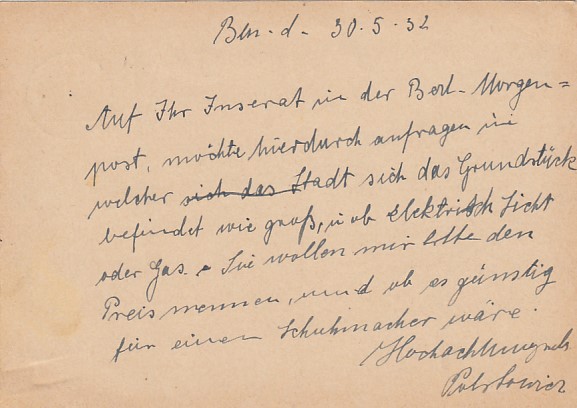 Bln. d. 30.5.32
Auf Ihr Inserat in der Berl. Morgen=
post, möchte hierdurch anfragen in
welcher sich das Stadt sich das Grundstück
befindet wie groß, u ob elektrisch Licht
oder Gas. Sie wollen mir bitte den
Preis nennen, und ob es günstig
für einen Schuhmacher wäre.
Hochachtungsvoll